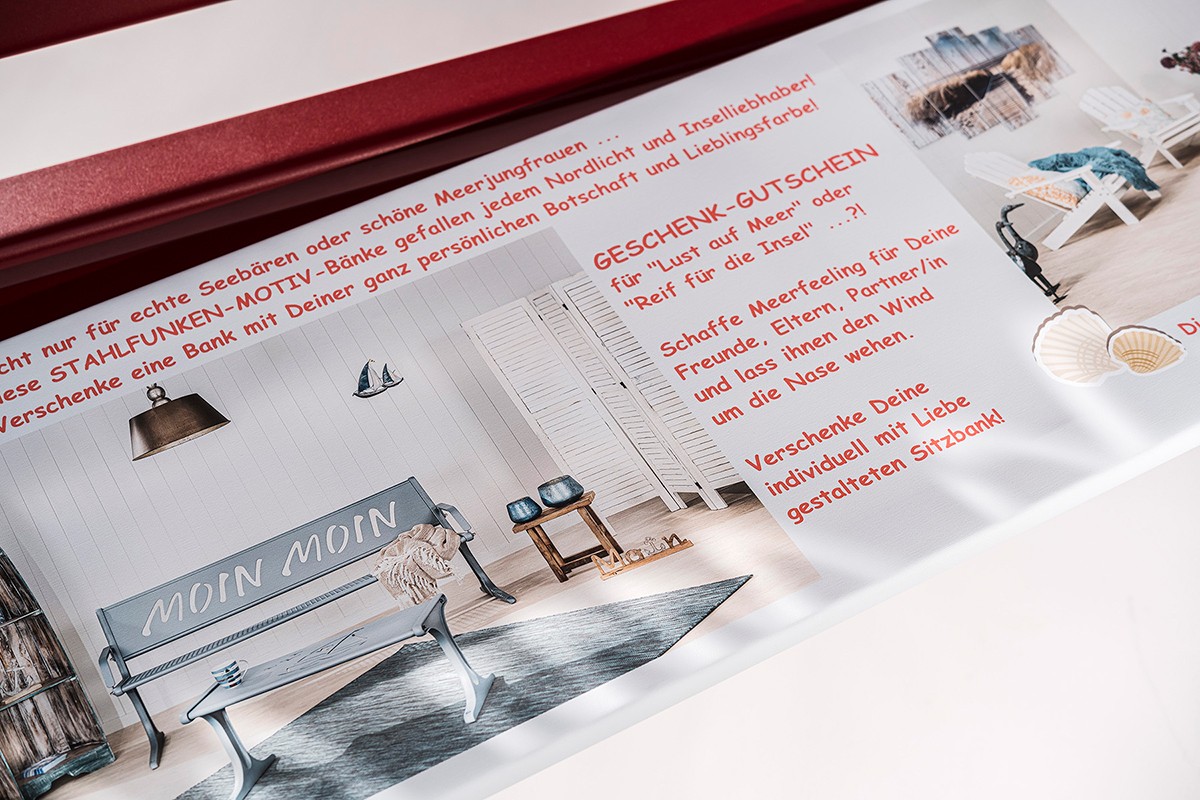 cht nur für echte Seebären oder schöne Meerjungfrauen ...
iese STAHLFUNKEN-MOTIV-Bänke gefallen jedem Nordlicht und Inselliebhaber!
Verschenke eine Bank mit Deiner ganz persönlichen Botschaft und Lieblingsfarbe!
GESCHENK-GUTSCHEIN
für "Lust auf Meer" oder
"Reif für die Insel" ...?!
Schaffe Meerfeeling für Deine
Freunde, Eltern, Partner/in
und lass ihnen den Wind
um die Nase wehen.
Verschenke Deine
individuell mit Liebe
gestalteten Sitzbank!
Di
MOIN MOIN
Moin